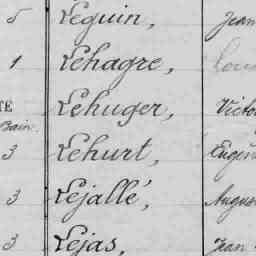 5 Leguin, Jean
1 Lehagre, Loui
TÉ Lehuger, Victo
Bain.
3 Lehurt, Eugèn
3 Lejallé, Augus
3 Lejas, Jean